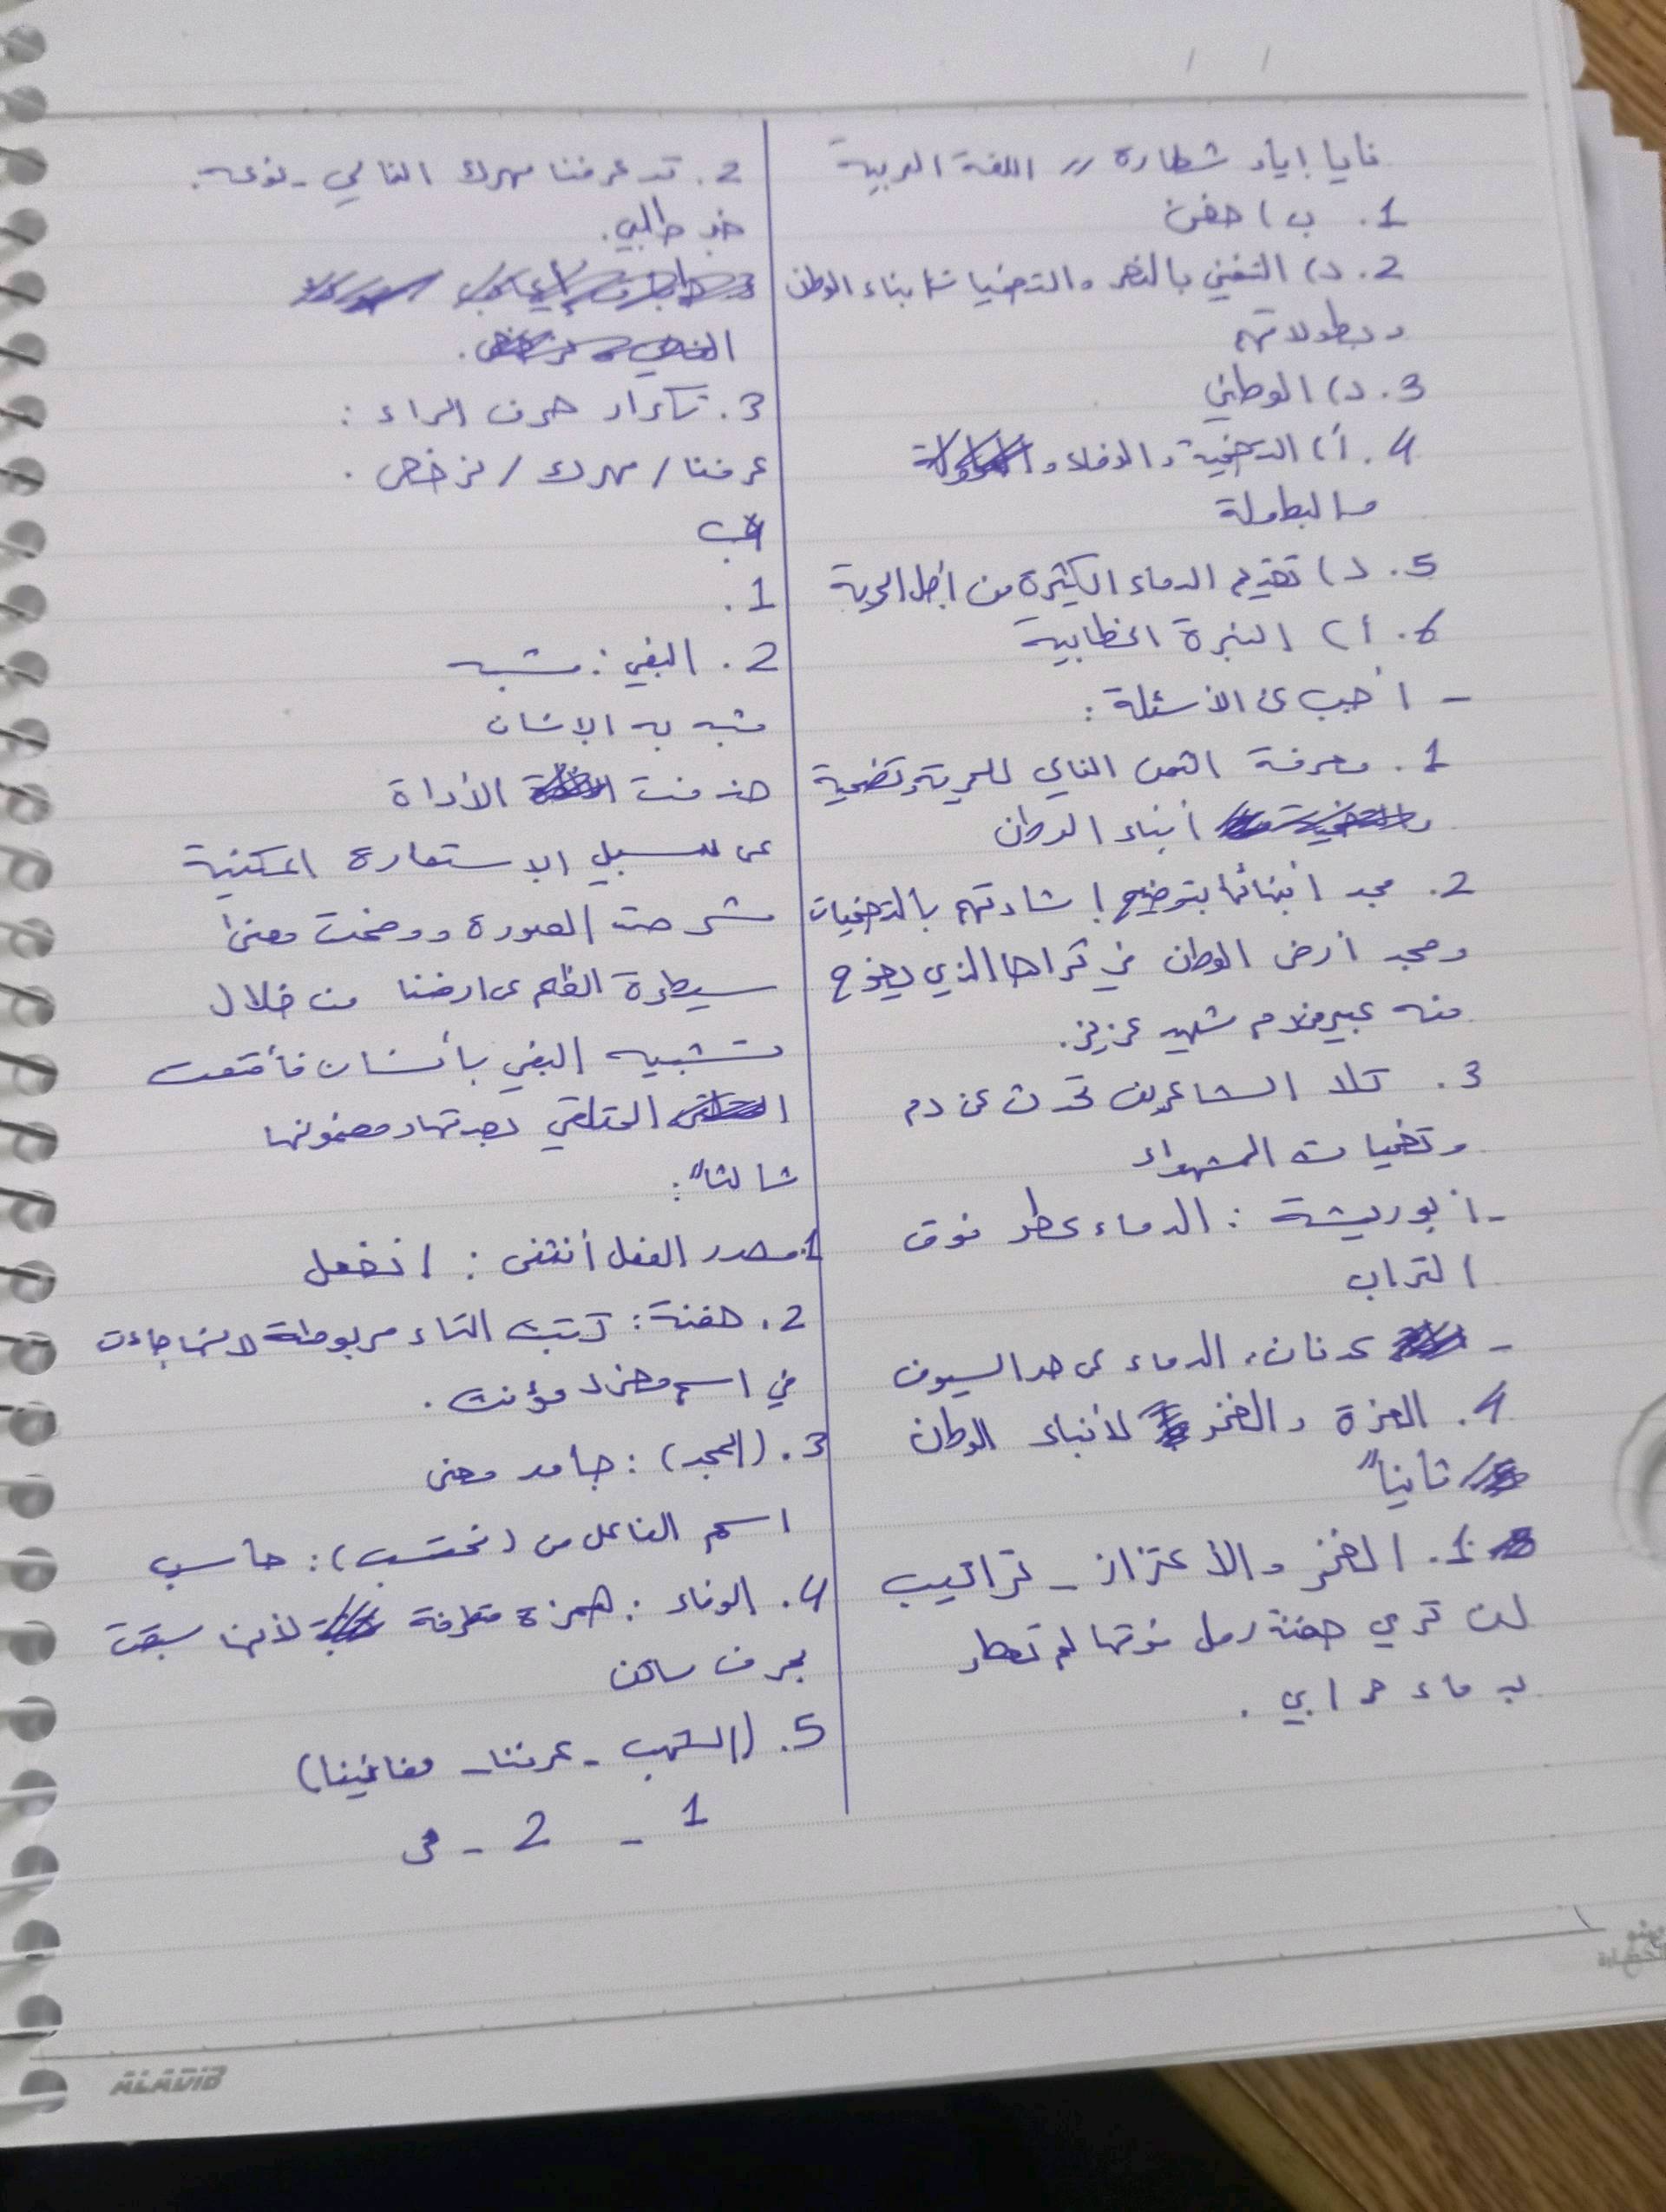 نايا إياد شطارة // اللغة العربية
1. ب) حفن
2. د) التغني بالنصر والتضحيات أبناء الوطن
وبطولاتهم
3. د) الوطني
4. أ) التضحية والوفاء و
والبطولة
5. د) تقديم الدماء الكثيرة من أجل الحرية
6. أ) النبرة الخطابية
- أجب عن الأسئلة:
1. معرفة الثمن الغالي للحرية وتضحية
أبناء الوطن
2. مجد أبنائها بتوضيح إشادتهم بالتضحيات
ومجد أرض الوطن في ثراها الذي يفوح
منه عبير شهيد عزيز.
3. كلا الشاعرين تحدث عن دم
وتضحيات الشهداء
- أبو ريشة: الدماء عطر فوق
التراب
- عدنان: الدماء على حد السيوف
4. العزة والفخر لأبناء الوطن
ثانياً
1. الفخر والاعتزاز - تراكيب
لن تري حفنة رمل فوقها لم تعطر
بدماء حر أبي.
2. قد عرفنا مهرك الغالي - نوعه:
خبر طلبي.
3. تكرار حرف الراء:
عرفنا / مهرك / نرخص.
ب
1.
2. البغي: مشبه
مشبه به الإنسان
حذفت الأداة
على سبيل الاستعارة المكنية
شرحت الصورة ووضحت معنى
سيطرة الظلم على ارضنا من خلال
تشبيه البغي بأنسان فأقنعت
المتلقي بجدتها ومضمونها
ثالثاً:
1. مصدر الفعل أنثنى: انفعل
2. حفنة: كتبت التاء مربوطة لانها جاءت
في اسم مفرد مؤنث.
3. (المجد): جامد معنى
اسم الفاعل من (نحتسب): حاسب
4. الوفاء: همزة متطرفة لأنها سبقت
بحرف ساكن
5. (الشهب - عرفنا - مغانينا)
1 - 2 - 3
ALADIB